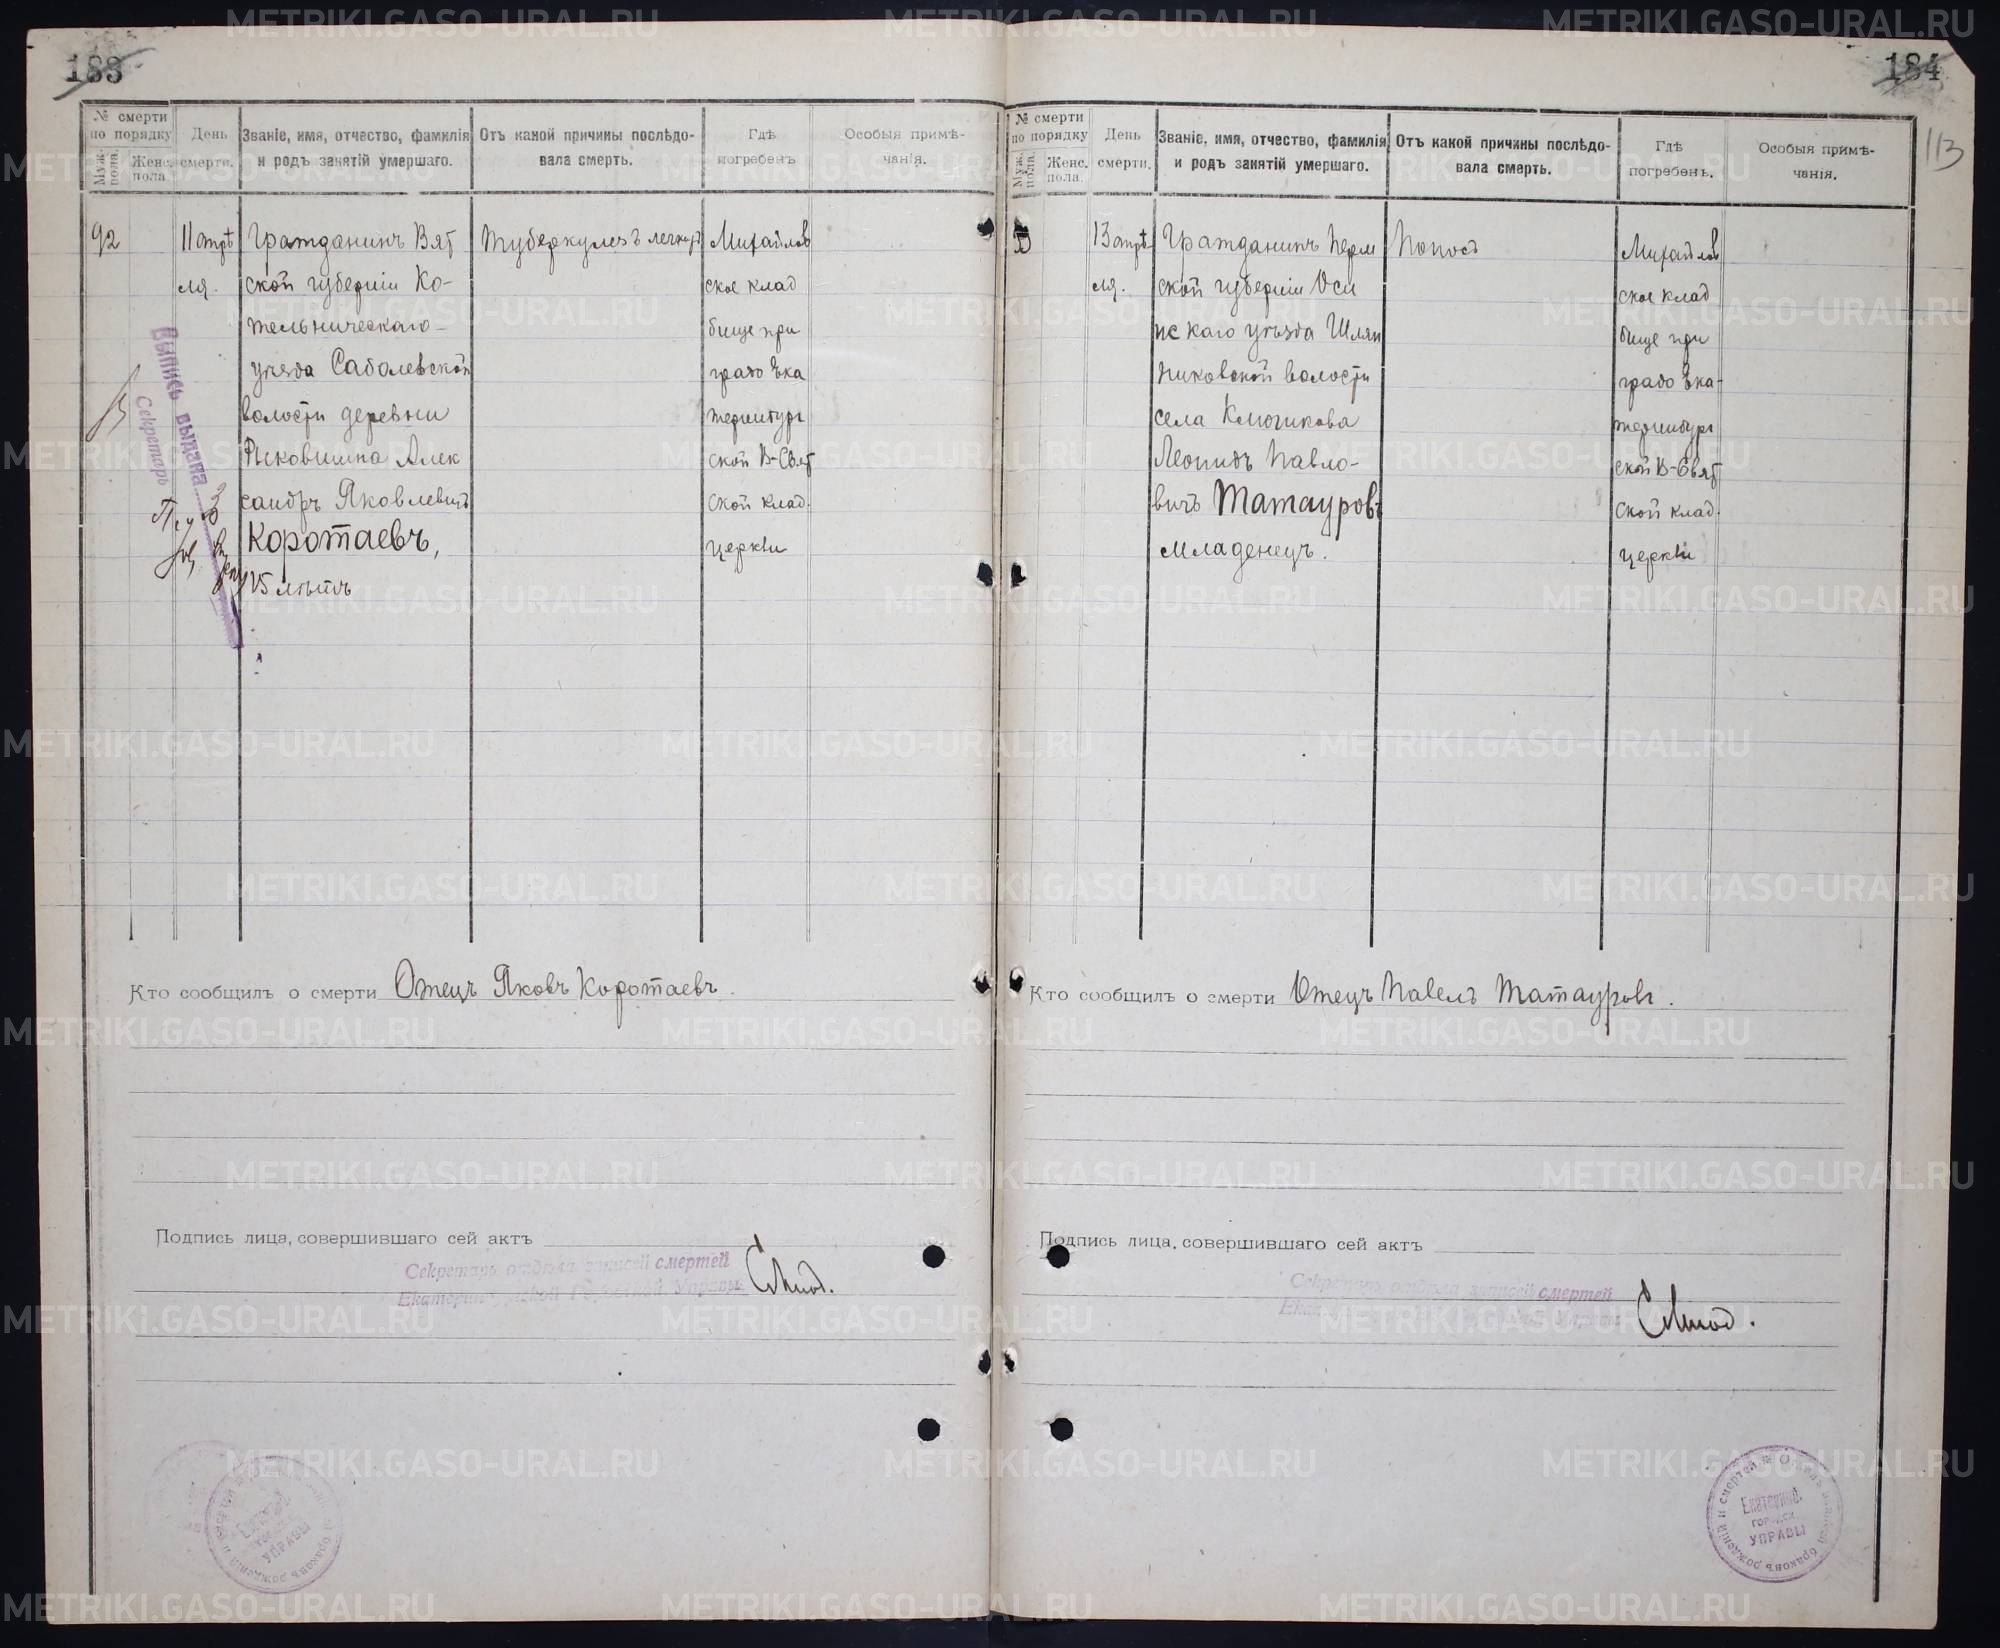 183
№ смерти
по порядку
Муж. пола.
Женс. пола
День смерти.
Званіе, имя, отчество, фамилія
и родъ занятій умершаго.
Отъ какой причины послѣдо-
вала смерть.
Гдѣ
погребенъ
Особыя примѣ-
чанія.
92
11 апрѣ
ля.
Гражданинъ Вят
ской губерніи Ко-
тельническаго
уѣзда Саболевской
волости деревни
Рыковшина Алек
сандръ Яковлевичъ
Коротаевъ,
25 лѣтъ
Туберкулезъ легкихъ
Михайлов
ское клад
бище при
градо Ека
теринбург
ской В-Свят
ской клад.
церкви
Выпись выдана
Секретарь
Кто сообщилъ о смерти Отецъ Яковъ Коротаевъ.
Подпись лица, совершившаго сей актъ
Секретарь отдѣла записей смертей
Екатеринбургской Городской Управы
УПРАВЫ
184
113
№ смерти
по порядку
Муж. пола.
Женс. пола.
День смерти.
Званіе, имя, отчество, фамилія
и родъ занятій умершаго.
Отъ какой причины послѣдо-
вала смерть.
Гдѣ
погребенъ.
Особыя примѣ-
чанія.
13 апрѣ
ля.
Гражданинъ Перм
ской губерніи Оси
нскаго уѣзда Шляп
никовской волости
села Ключикова
Леонидъ Павло-
вичъ Татауровъ
младенецъ.
Поносъ
Михайлов
ское клад
бище при
градо Ека-
теринбург
ской В-Свят
ской клад.
церкви
Кто сообщилъ о смерти Отецъ Павелъ Татауровъ.
Подпись лица, совершившаго сей актъ
Секретарь отдѣла записей смертей
Екатеринбургской Городской Управы
Екатеринб.
ГОРОДСК.
УПРАВЫ
METRIKI.GASO-URAL.RU